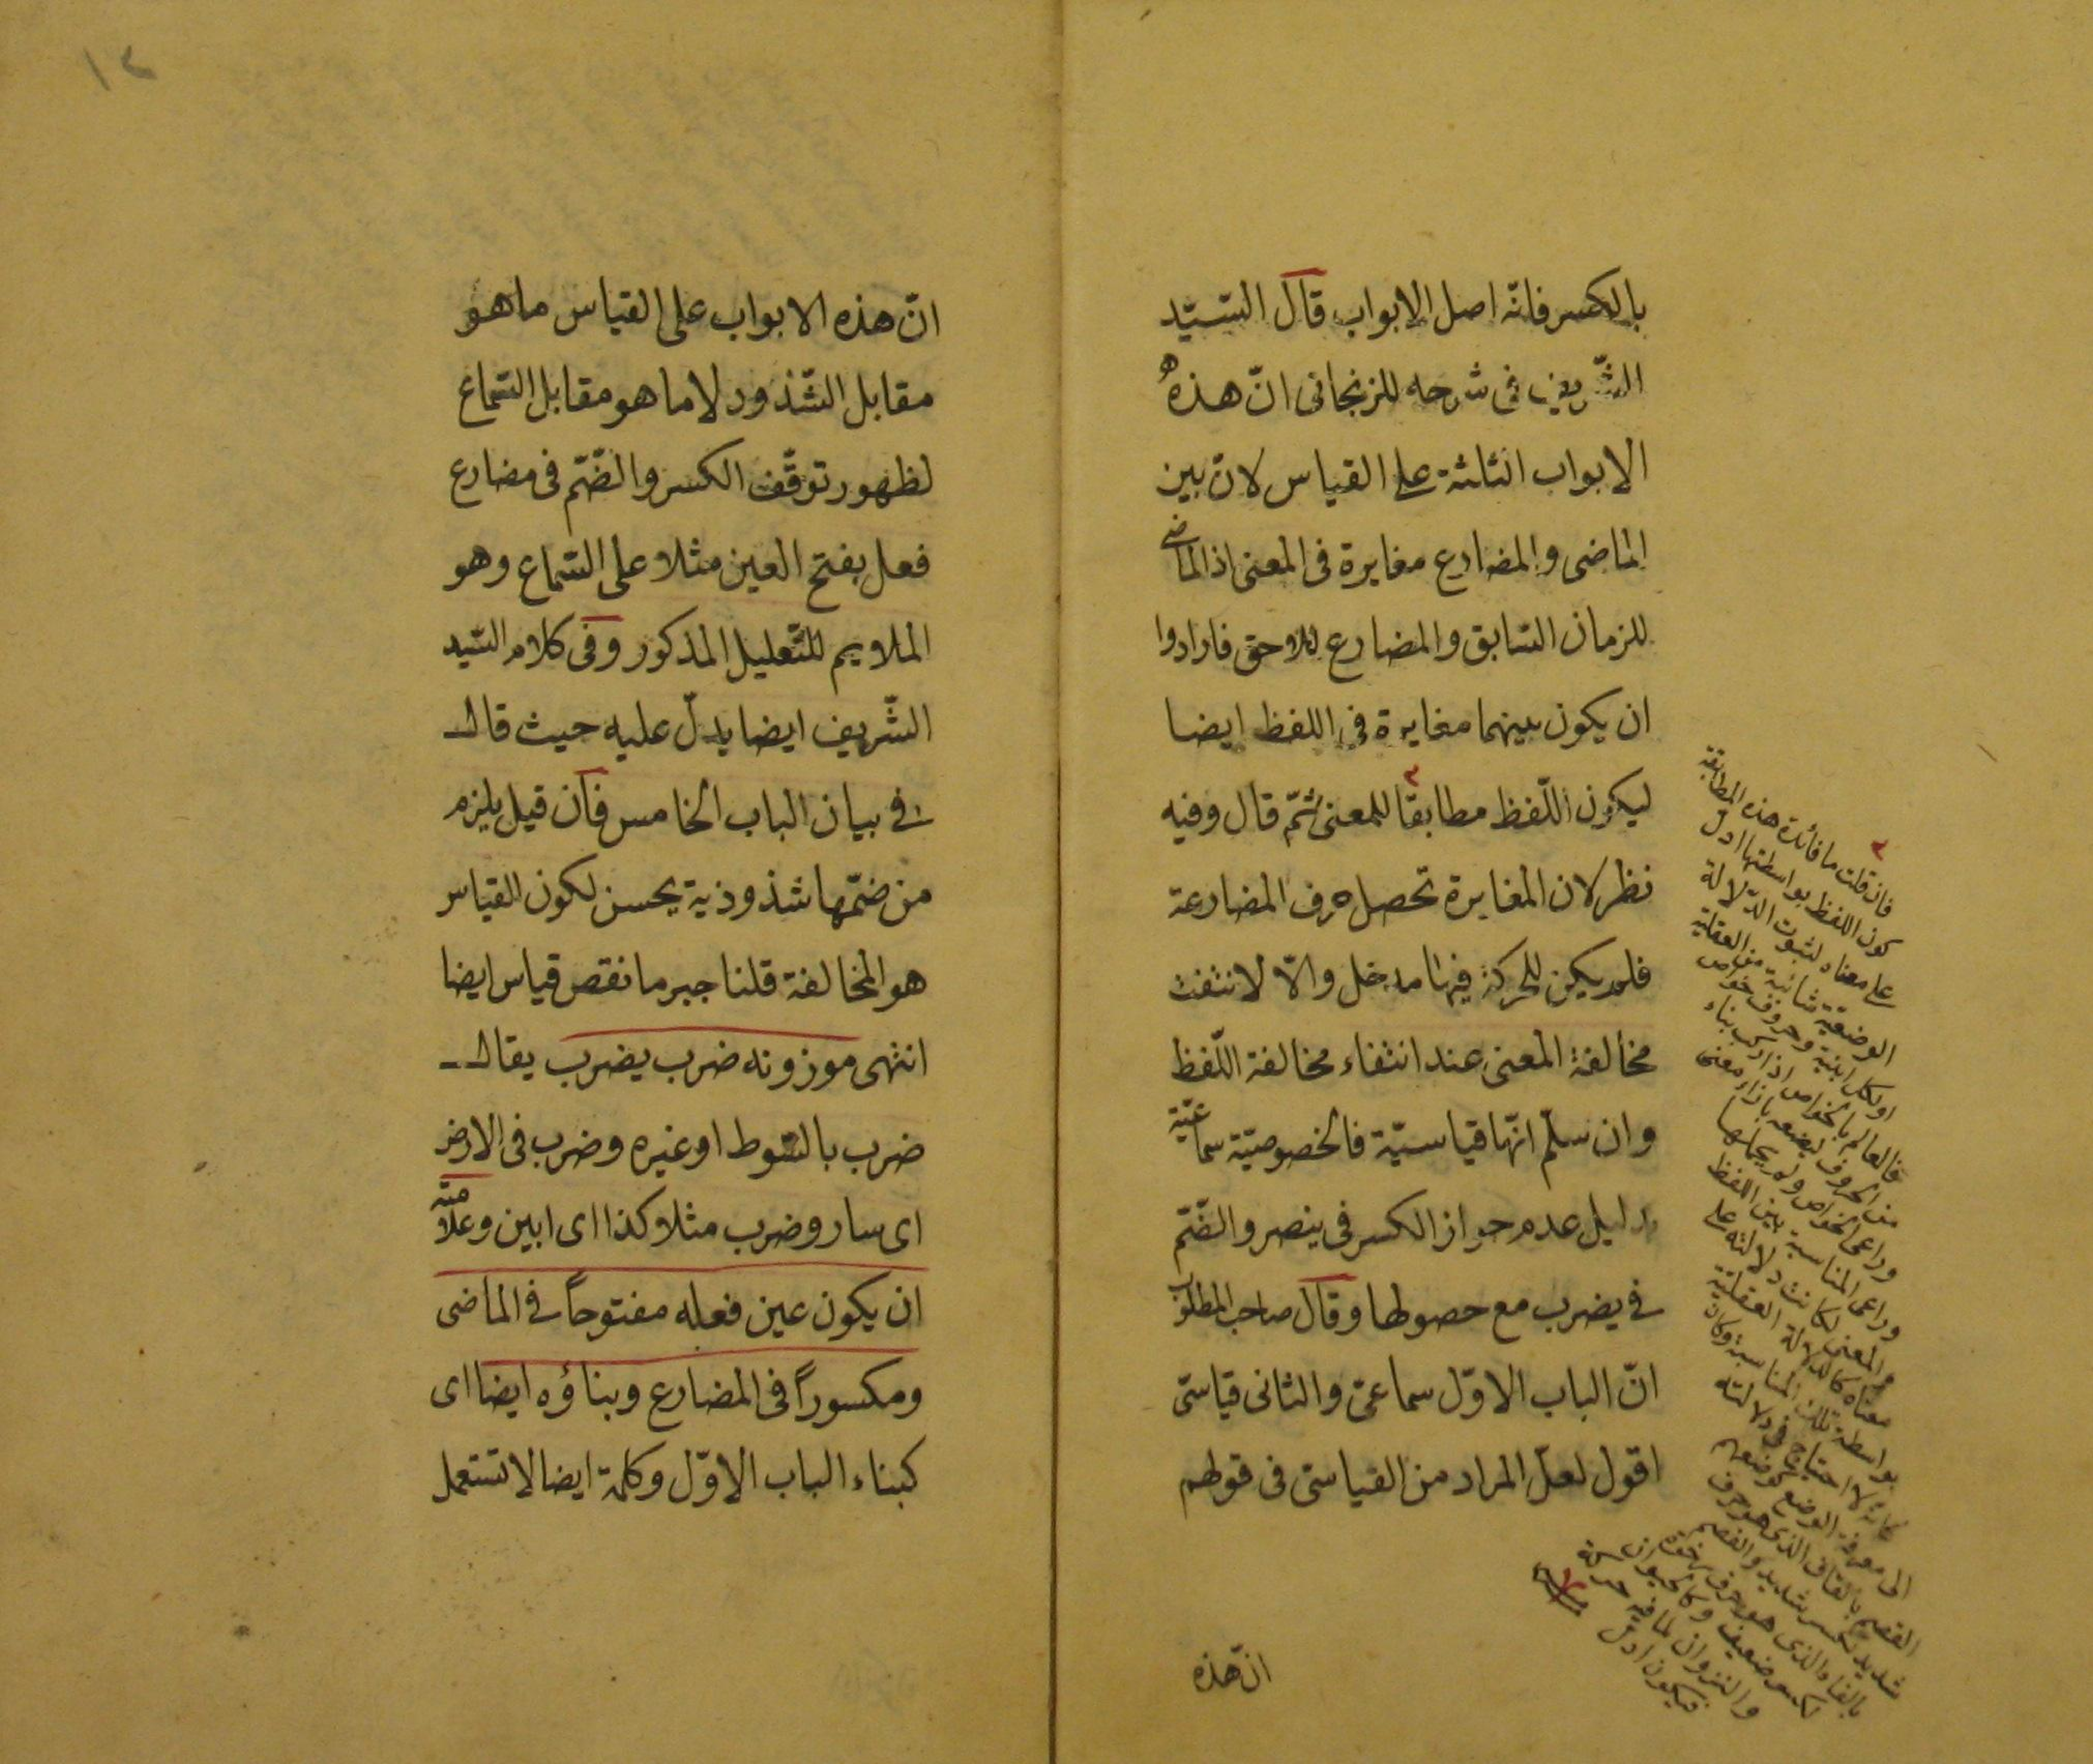 بالكسر فانّه اصل الابواب قال السّيّد
الشّريف فى شرحه للزنجانى انّ هذه
الابواب الثلثة على القياس لانّ بين
الماضى والمضارع مغايرة فى المعنى اذ الماضى
للزمان السّابق والمضارع للاحق فارادوا
ان يكون بينهما مغايرة فى اللفظ ايضا
ليكون اللّفظ مطابقا للمعنى ثمّ قال وفيه
نظر لان المغايرة تحصل بحرف المضارعة
فلم يكن للحركة فيها مدخل والّا لانتفت
مخالفة المعنى عند انتفاء مخالفة اللّفظ
وان سلّم انّها قياسيّة فالخصوصيّة سماعيّة
بدليل عدم جواز الكسر فى ينصر والضّمّ
فى يضرب مع حصولها وقال صاحب المطلوب
انّ الباب الاوّل سماعىّ والثانى قياسىّ
اقول لعلّ المراد من القياسىّ فى قولهم
انّ هذه
فان قلت ما فائدة هذه المطابقة
كون اللفظ بواسطتها ادلّ
على معناه لثبوت الدّلالة
الوضعيّة شائبة من العقلية
اذ لكل ابنية وحروف خواص
فالعالم بالخواص اذا ركب بناء
من الحروف ليضعه بازاء معنى
وراعى الخواص ولم يهملها
وراعى المناسبة بين اللفظ
والمعنى لكانت دلالته على
معناه كالدلالة العقلية
بواسطة تلك المناسبة وكان
كانّه لا احتياج فى دلالته
الى معرفة الوضع كوضعهم
القصم بالقاف الذى هو حرف
شديد لكسر شديد والفصم
بالفاء الذى هو حرف رخو
لكسر ضعيف وكالحيوان
والنزوان لما فيه حركة
فيكون ادلّ
١٢
انّ هذه الابواب على القياس ما هو
مقابل الشّذوذ لا ما هو مقابل السّماع
لظهور توقّف الكسر والضّمّ فى مضارع
فعل بفتح العين مثلا على السّماع وهو
الملايم للتّعليل المذكور وفى كلام السّيد
الشّريف ايضا يدلّ عليه حيث قال
فى بيان الباب الخامس فان قيل يلزم
من ضمّها شذوذية يحسن لكون القياس
هو المخالفة قلنا جبر ما نقص قياس ايضا
انتهى موزونه ضرب يضرب يقال
ضرب بالسّوط او غيره وضرب فى الارض
اى سار وضرب مثلا كذا اى ابين وعلامته
ان يكون عين فعله مفتوحاً فى الماضى
ومكسوراً فى المضارع وبناؤه ايضا اى
كبناء الباب الاوّل وكلمة ايضا لا تستعمل